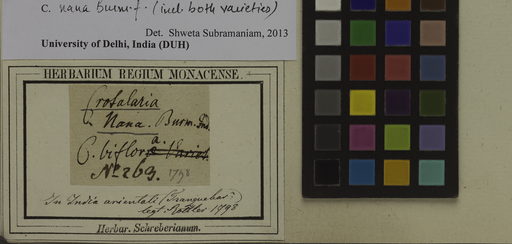 C. nana Burm. f. (incl. both varieties)
Det. Shweta Subramaniam, 2013
University of Delhi, India (DUH)
HERBARIUM REGIUM MONACENSE.
Crotalaria
C. Nana. Burm. Ind.
a.
C. biflora
No 263. 1798
In India orientali (Tranquebar)
legt. Rottler 1798
Herbar. Schreberianum.